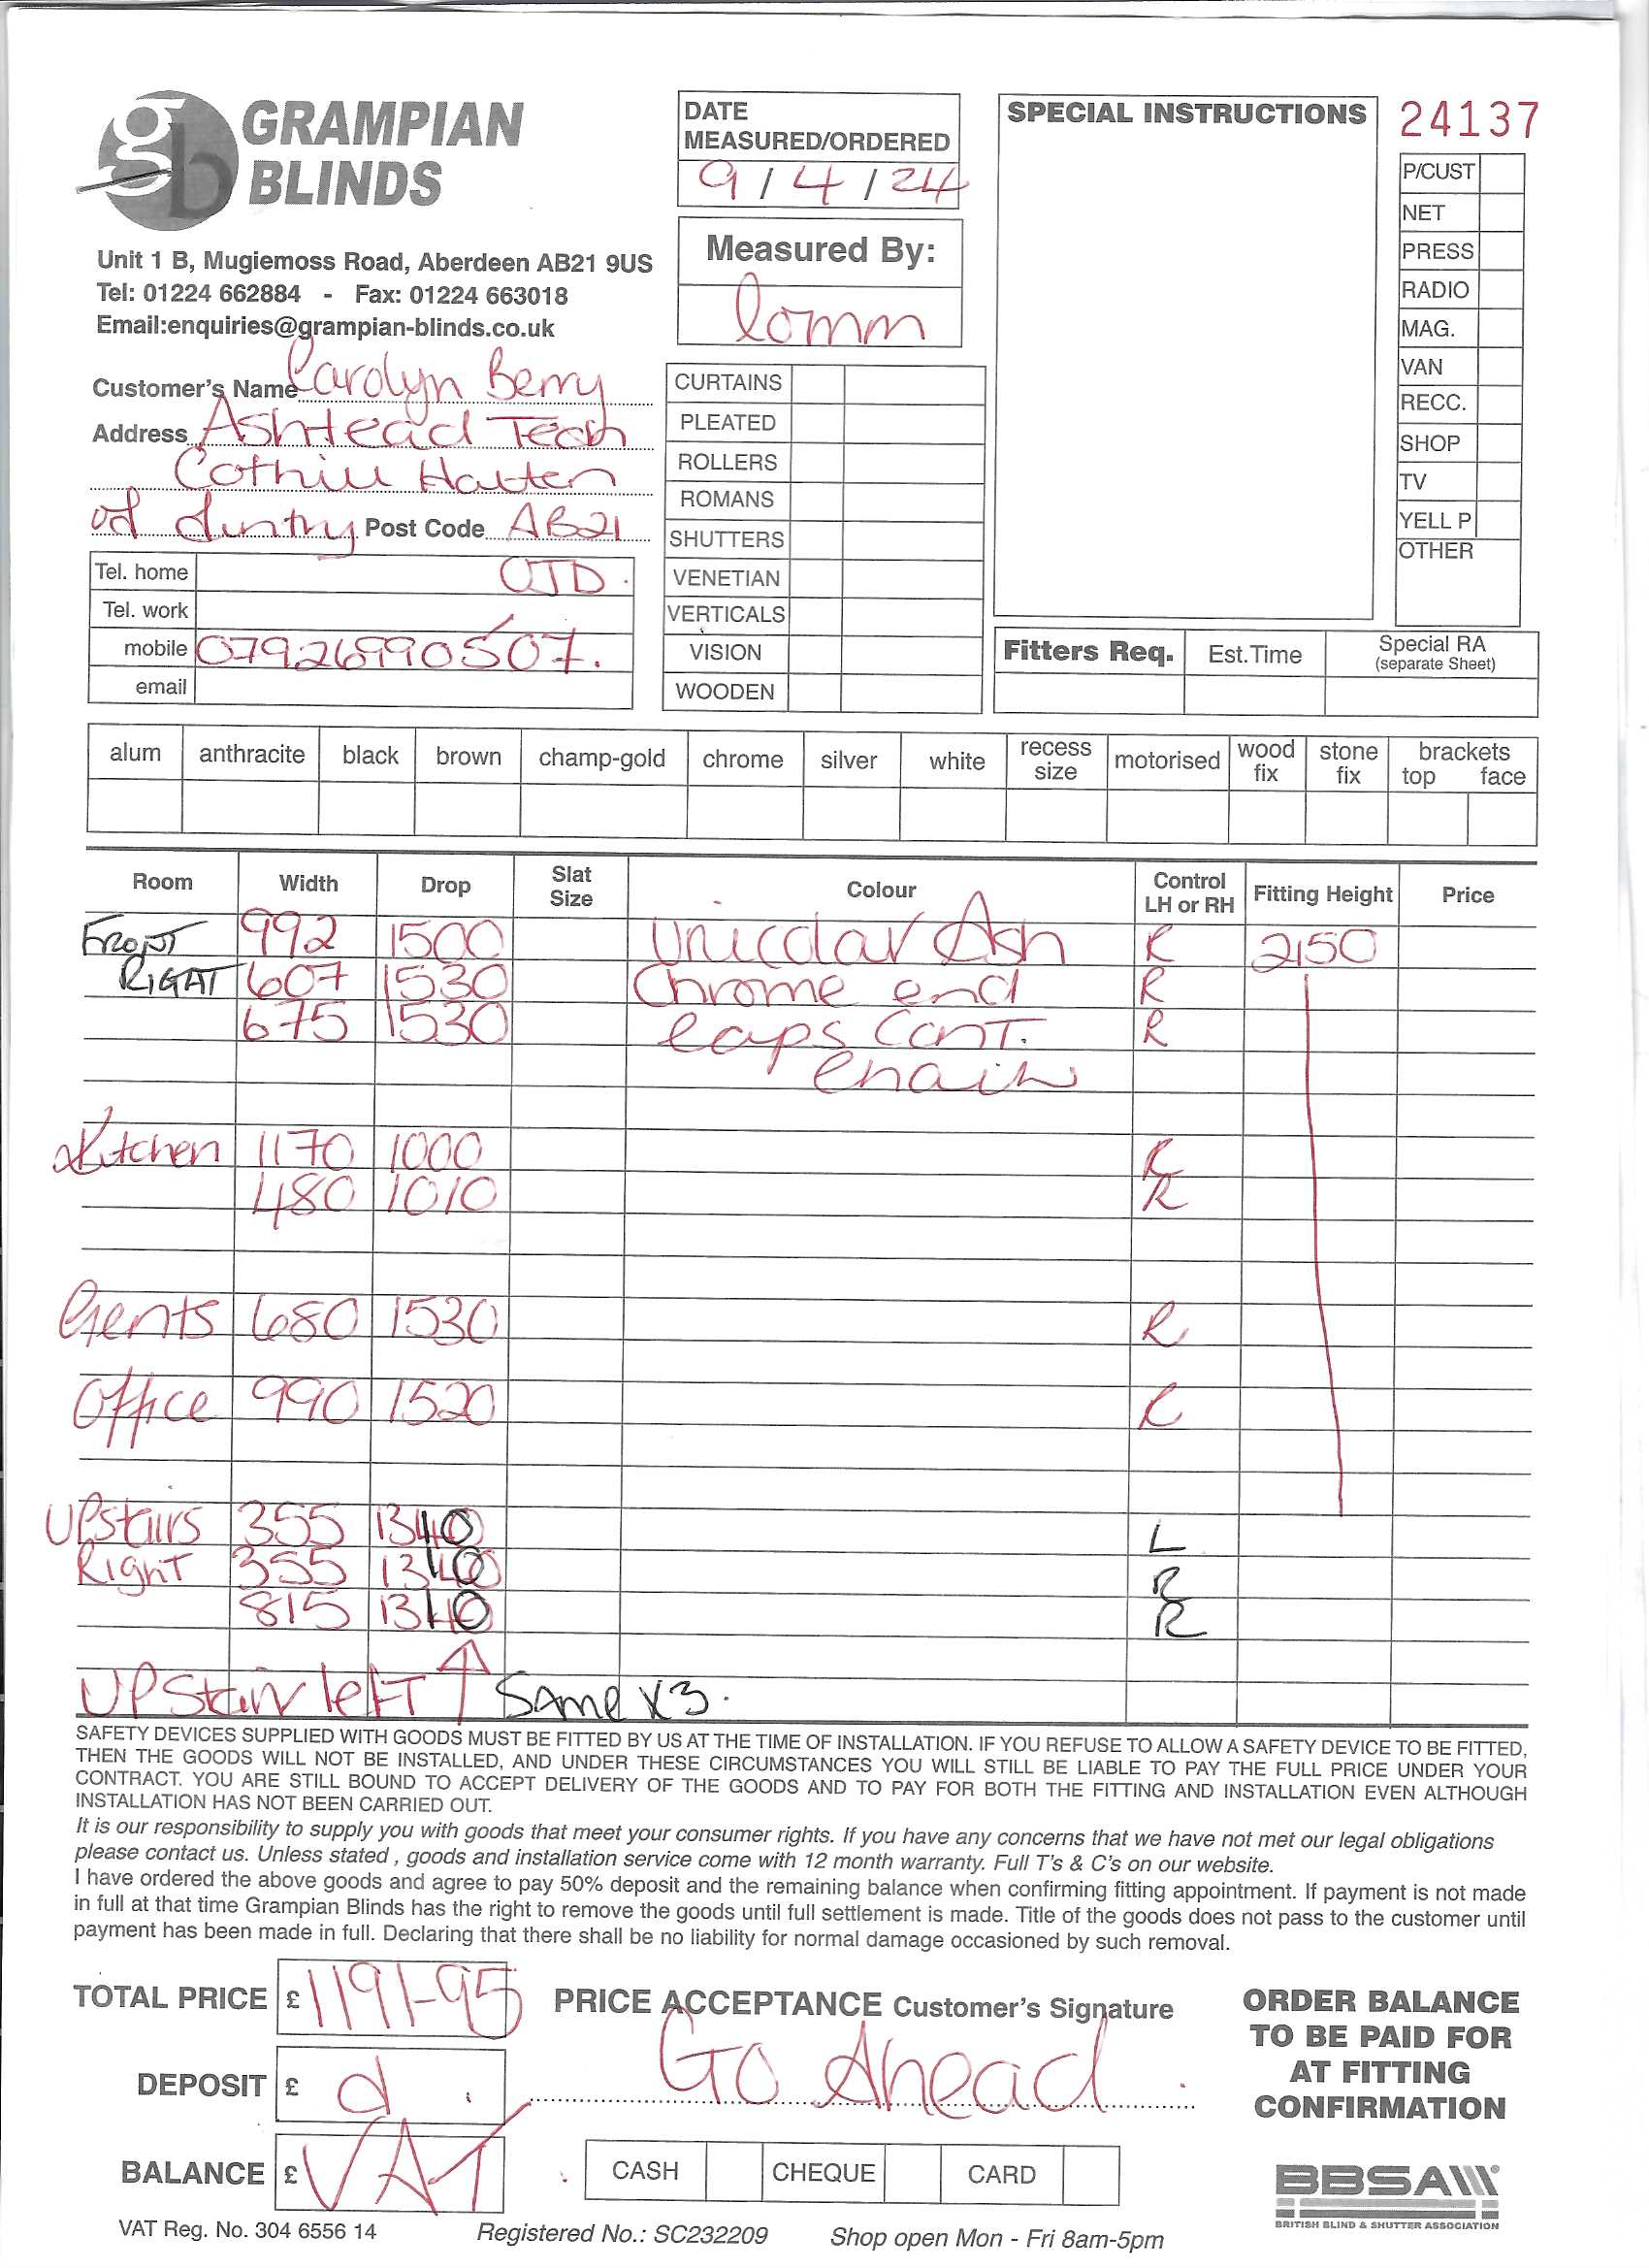 GRAMPIAN
BLINDS
Unit 1 B, Mugiemoss Road, Aberdeen AB21 9US
Tel: 01224 662884 - Fax: 01224 663018
Email:enquiries@grampian-blinds.co.uk
DATE
MEASURED/ORDERED
9/4/24
Measured By:
SPECIAL INSTRUCTIONS
24137
P/CUST
NET
PRESS
RADIO
MAG.
VAN
RECC.
SHOP
TV
YELL P
OTHER
Customer's Name Carolyn Berry
Address Ashtead Tech
Post Code AB21
Tel. home
Tel. work
mobile 07926990507.
email
CURTAINS
PLEATED
ROLLERS
ROMANS
SHUTTERS
VENETIAN
VERTICALS
VISION
WOODEN
Fitters Req. Est.Time Special RA
(separate Sheet)
alum anthracite black brown champ-gold chrome silver white recess size motorised wood fix stone fix brackets top face
Room Width Drop Slat Size Colour Control LH or RH Fitting Height Price
FRONT 992 1500 Unicolar Ash R 2150
RIGHT 607 1530 Chrome end R
675 1530 caps Cont. R
chain
Kitchen 1170 1000 R
480 1010 R
Gents 680 1530 R
Office 990 1520 R
UPstairs 355 1340 L
Right 355 1340 R
815 1340 R
UPStair left ↑ Same x3.
SAFETY DEVICES SUPPLIED WITH GOODS MUST BE FITTED BY US AT THE TIME OF INSTALLATION. IF YOU REFUSE TO ALLOW A SAFETY DEVICE TO BE FITTED,
THEN THE GOODS WILL NOT BE INSTALLED, AND UNDER THESE CIRCUMSTANCES YOU WILL STILL BE LIABLE TO PAY THE FULL PRICE UNDER YOUR
CONTRACT. YOU ARE STILL BOUND TO ACCEPT DELIVERY OF THE GOODS AND TO PAY FOR BOTH THE FITTING AND INSTALLATION EVEN ALTHOUGH
INSTALLATION HAS NOT BEEN CARRIED OUT.
It is our responsibility to supply you with goods that meet your consumer rights. If you have any concerns that we have not met our legal obligations
please contact us. Unless stated , goods and installation service come with 12 month warranty. Full T's & C's on our website.
I have ordered the above goods and agree to pay 50% deposit and the remaining balance when confirming fitting appointment. If payment is not made
in full at that time Grampian Blinds has the right to remove the goods until full settlement is made. Title of the goods does not pass to the customer until
payment has been made in full. Declaring that there shall be no liability for normal damage occasioned by such removal.
TOTAL PRICE £ 1191-95
PRICE ACCEPTANCE Customer's Signature
Go Ahead
DEPOSIT £
BALANCE £ VAT
CASH CHEQUE CARD
ORDER BALANCE
TO BE PAID FOR
AT FITTING
CONFIRMATION
BBSA
BRITISH BLIND & SHUTTER ASSOCIATION
VAT Reg. No. 304 6556 14 Registered No.: SC232209 Shop open Mon - Fri 8am-5pm